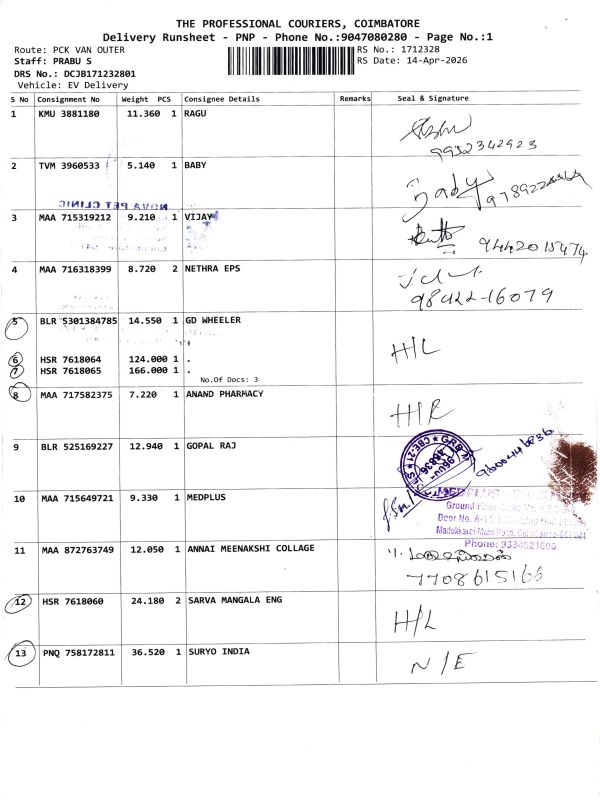 THE PROFESSIONAL COURIERS, COIMBATORE
Delivery Runsheet - PNP - Phone No.:9047080280 - Page No.:1
Route: PCK VAN OUTER
RS No.: 1712328
Staff: PRABU S
RS Date: 14-Apr-2026
DRS No.: DCJB171232801
Vehicle: EV Delivery
S No Consignment No Weight PCS Consignee Details Remarks Seal & Signature
1 KMU 3881180 11.360 1 RAGU
9932342923
2 TVM 3960533 5.140 1 BABY
Baby
NOVA PET CLINIC
3 MAA 715319212 9.210 1 VIJAY
9442015474
4 MAA 716318399 8.720 2 NETHRA EPS
98422-16079
5 BLR 5301384785 14.550 1 GD WHEELER
H/L
6 HSR 7618064 124.000 1 .
7 HSR 7618065 166.000 1 .
No.Of Docs: 3
8 MAA 717582375 7.220 1 ANAND PHARMACY
H/R
9 BLR 525169227 12.940 1 GOPAL RAJ
10 MAA 715649721 9.330 1 MEDPLUS
MEDPLUS
Ground Floor
Door No.
Madukkarai Main Road,
Phone:
11 MAA 872763749 12.050 1 ANNAI MEENAKSHI COLLAGE
7708615166
12 HSR 7618060 24.180 2 SARVA MANGALA ENG
H/L
13 PNQ 758172811 36.520 1 SURYO INDIA
N/E